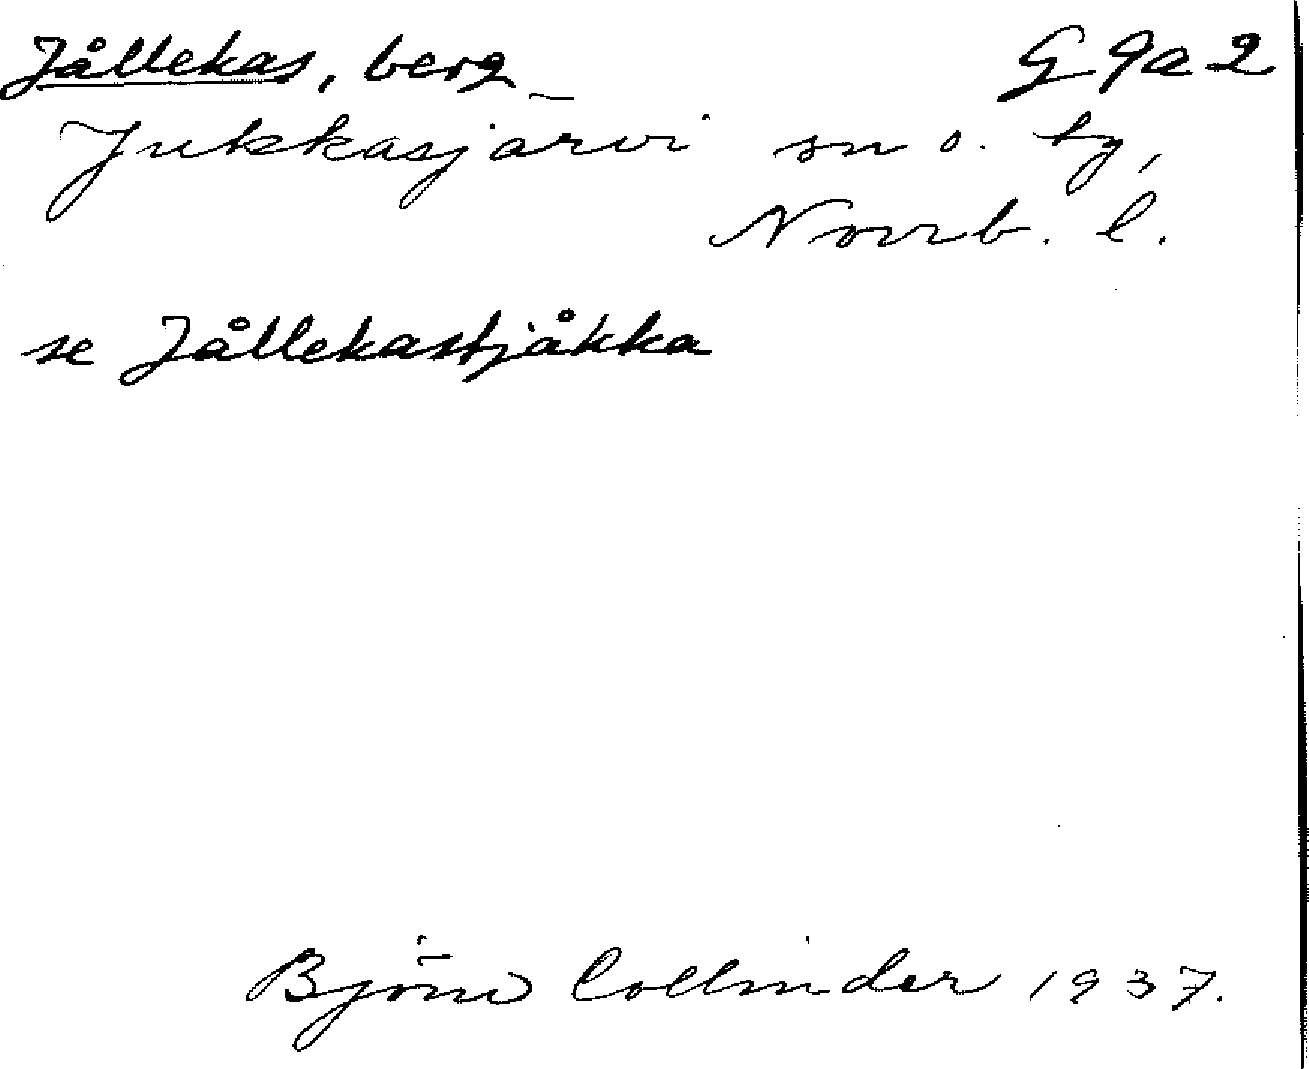 Jållekas, berg G 9a 2
Jukkasjärvi sn o. tg,
Norrb. l.
se Jållekastjåkka
Björn Collinder 1937.